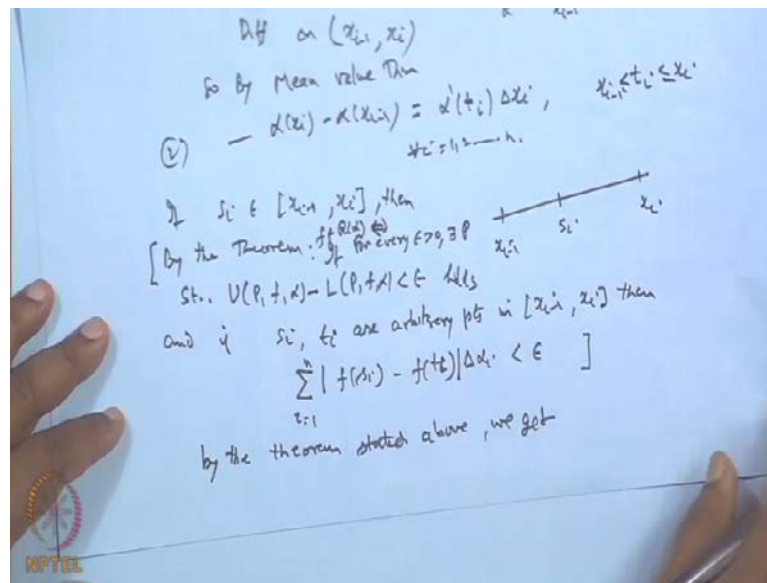 Diff on (x_{i-1}, x_i)
So By Mean value Thm
(2) — α(x_i) - α(x_{i-1}) = α'(t_i) Δx_i, x_{i-1} ≤ t_i ≤ x_i
∀ i = 1, 2 — n.
If s_i ∈ [x_{i-1}, x_i], then
[By the Theorem: f ∈ R(α) ⇔ If for every ε>0, ∃ P
x_{i-1} s_i x_i
St.. U(P, f, α) - L(P, f, α) < ε holds
and if s_i, t_i are arbitrary pts in [x_{i-1}, x_i] then
n
Σ | f(s_i) - f(t_i) | Δα_i < ε ]
i=1
by the theorem stated above, we get
NPTEL